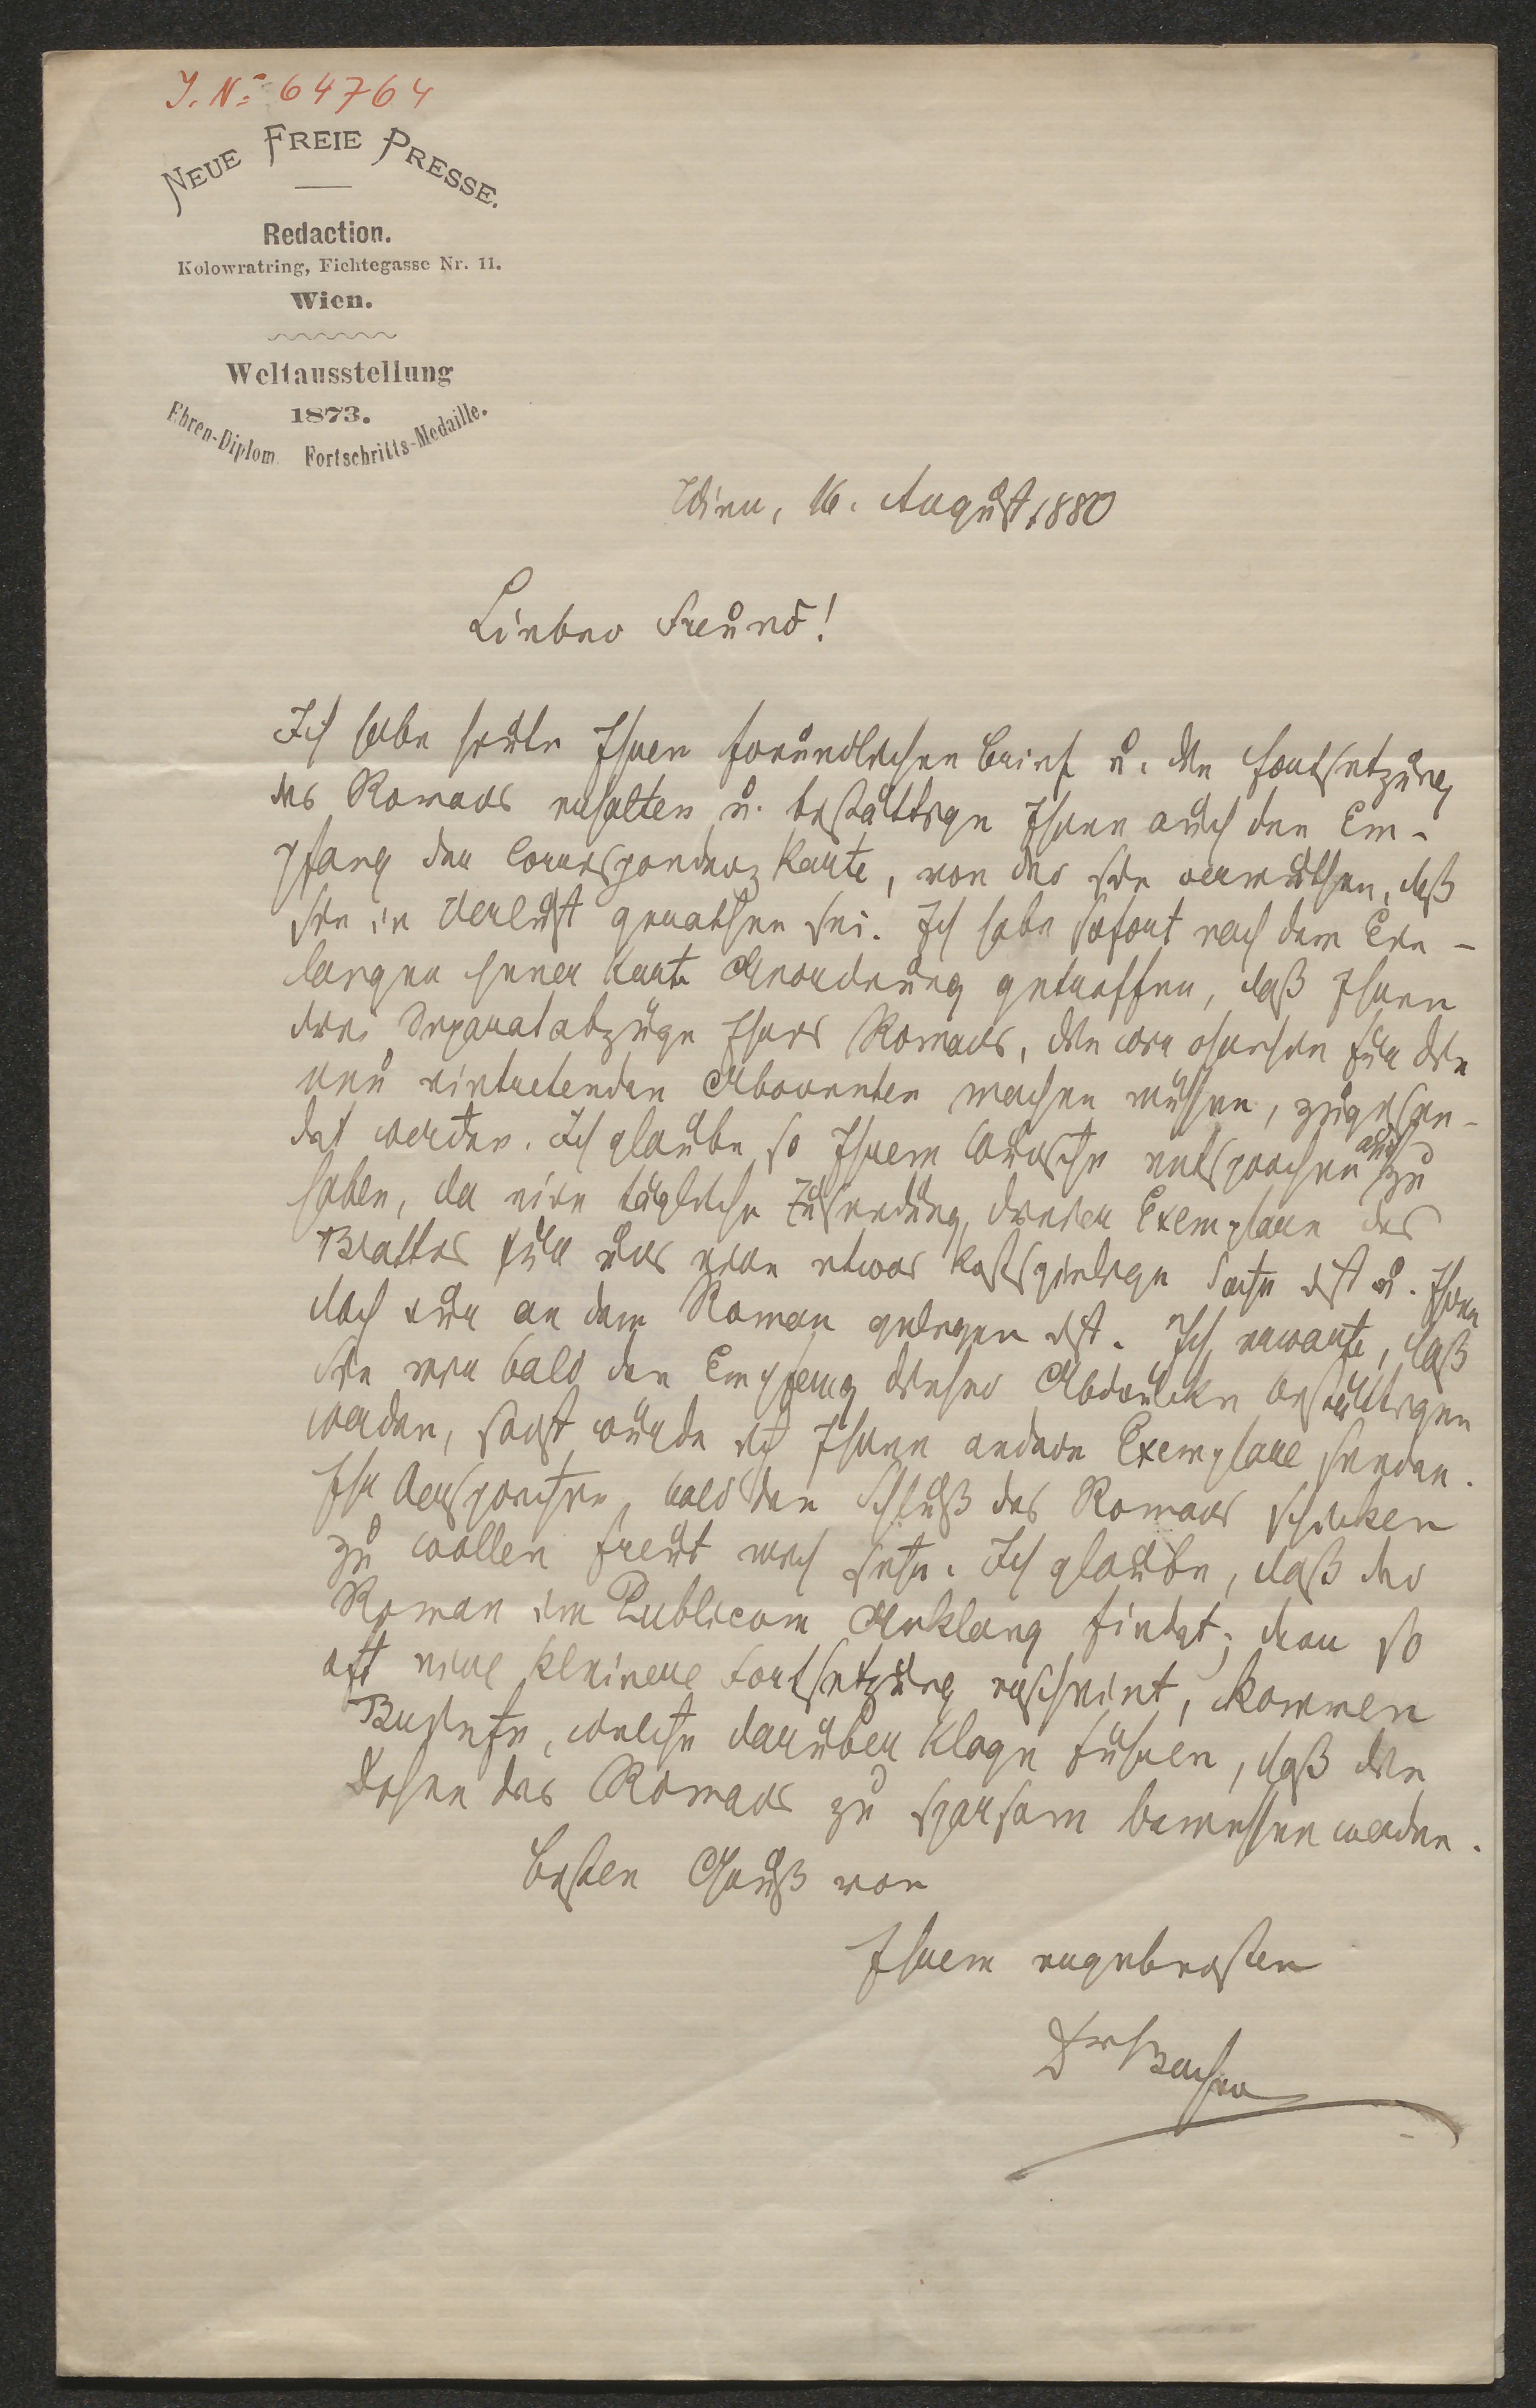 J. N: 64764
NEUE FREIE PRESSE.
Redaction.
Kolowratring, Fichtegasse Nr. 11.
Wien.
Weltausstellung
1873.
Ehren-Diplom Fortschritts-Medaille.
Wien, 16. August 1880
Lieber Freund!
Ich habe heute Ihren freundlichen Brief u. die Fortsetzung
des Romans erhalten u. bestättige Ihnen auch den Em-
pfang der Correspondenz Karte, von der Sie vermuthen, daß
sie in Verlust gerathen sei. Ich habe sofort nach dem Ein-
langen jener Karte Anordnung getroffen, daß Ihnen
drei Separatabzüge Ihres Romans, die wir ohnehin für die
neu eintretenden Abonnenten machen müssen, zugesen-
det werden. Ich glaube so Ihrem Wunsche entsprochen auch zu
haben, da eine tägliche Zusendung dreier Exemplare des
Blattes für uns eine etwas kostspielige Sache ist u. Ihnen
doch nur an dem Roman gelegen ist. Ich erwarte, daß
Sie mir bald den Empfang dieser Abdrücke bestättigen
werden, sonst würde ich Ihnen andere Exemplare senden.
Ihr Versprechen, bald den Schluß des Romans schicken
zu wollen freut mich sehr. Ich glaube, daß der
Roman im Publicum Anklang findet; denn so
oft eine kleinere Fortsetzung erscheint, kommen
Briefe, welche darüber Klage führen, daß die
Dosen des Romans zu sparsam bemessen werden.
Besten Gruß von
Ihrem ergebensten
Dr Bacher